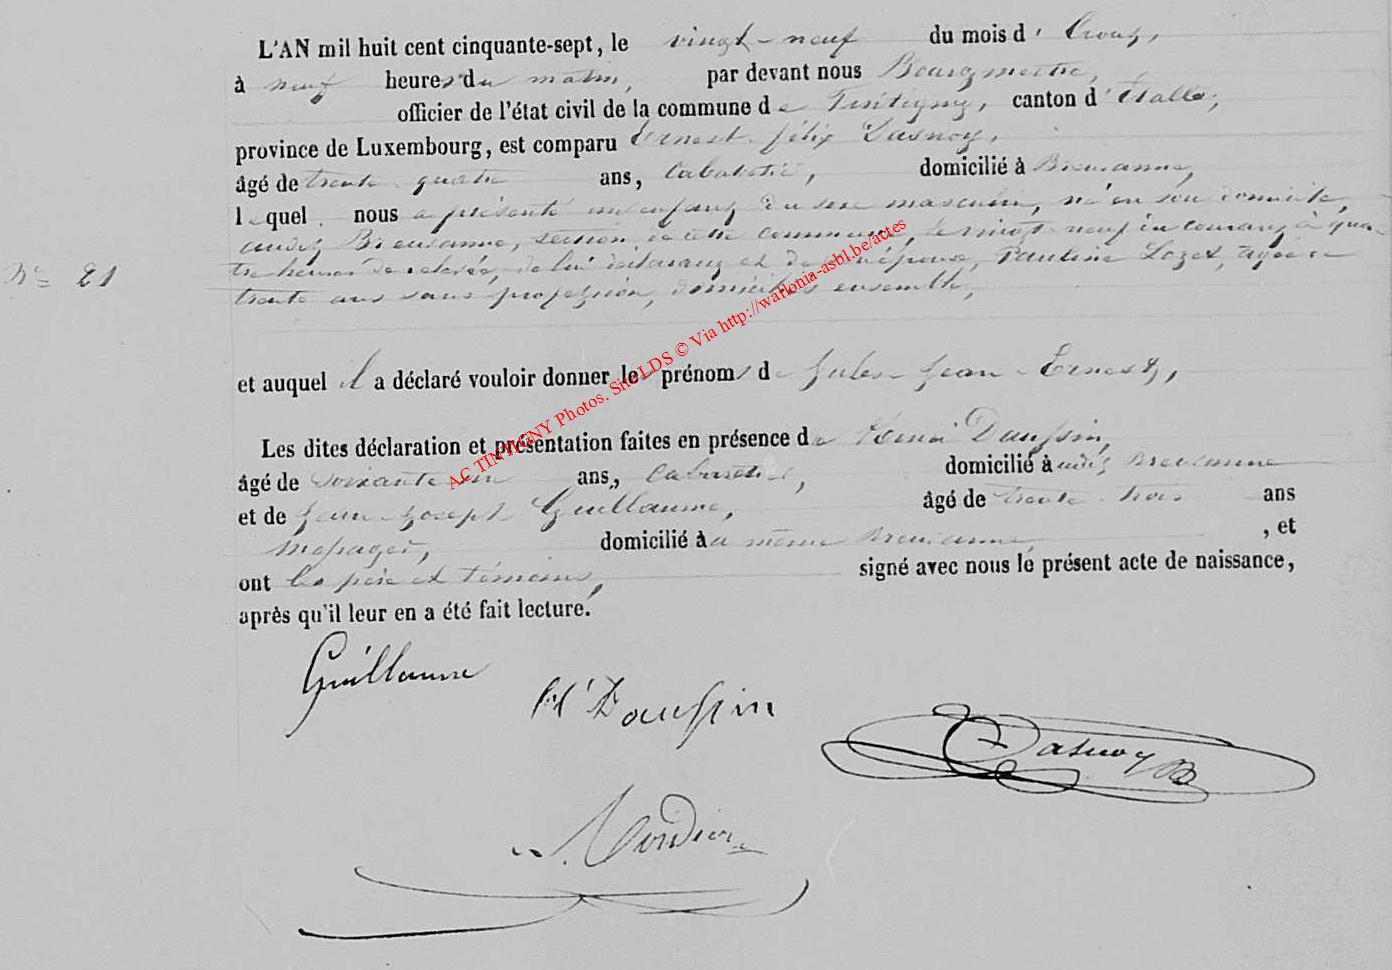 L'AN mil huit cent cinquante-sept, le vingt-neuf du mois d'
à neuf heures du matin, par devant nous Bourgmestre,
officier de l'état civil de la commune de Tintigny, canton d'Étalle,
province de Luxembourg, est comparu Ernest Félix Lasnoy,
âgé de trente quatre ans, cabaretier, domicilié à Breuvanne,
lequel nous a présenté un enfant du sexe masculin, né en son domicile,
audit Breuvanne, section de cette commune, le vingt-neuf du courant à qua-
tre heures de relevée, de lui déclarant et de son épouse, Pauline Lozet, âgée de
N° 21
trente ans sans profession, domiciliés ensemble,
et auquel il a déclaré vouloir donner les prénoms de Jules-Jean-Ernest,
Les dites déclaration et présentation faites en présence de Henri Daussin,
âgé de soixante un ans, cabaretier, domicilié à udit Breuvanne
et de Jean-Joseph Guillaume, âgé de trente-trois ans
Messager, domicilié à u même Breuvanne, et
ont les père et témoins, signé avec nous le présent acte de naissance,
après qu'il leur en a été fait lecture.
Guillaume
H Daussin
Lasnoy
AC TINTIGNY Photos. Site LDS © Via http://wallonia-asbl.be/actes